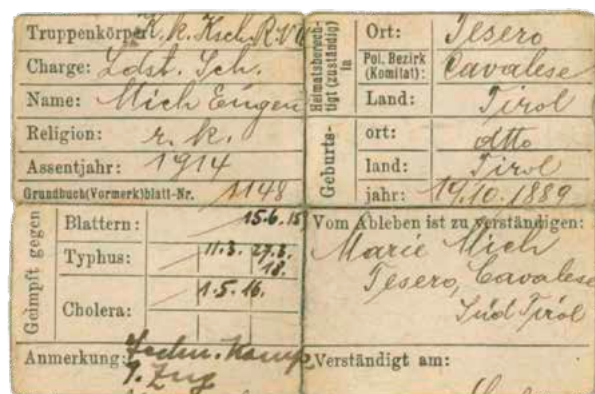 Truppenkörper K. k. Ksch. R. No
Charge: Ldst. Sch.
Name: Mich Eugen
Religion: r. k.
Assentjahr: 1914
Grundbuch(Vormerk)blatt-Nr. 1148
Heimatsberechtigt (zuständig) in
Ort: Tesero
Pol. Bezirk (Komitat): Cavalese
Land: Tirol
Geburts-
ort: dtto
land: Tirol
jahr: 19.10.1889
Geimpft gegen
Blattern: 15.6.15
Typhus: 11.3. 27.3. 18.
Cholera: 1.5.16.
Anmerkung: Techn. Komp
1. Zug
Vom Ableben ist zu verständigen:
Marie Mich
Tesero, Cavalese
Süd Tirol
Verständigt am: